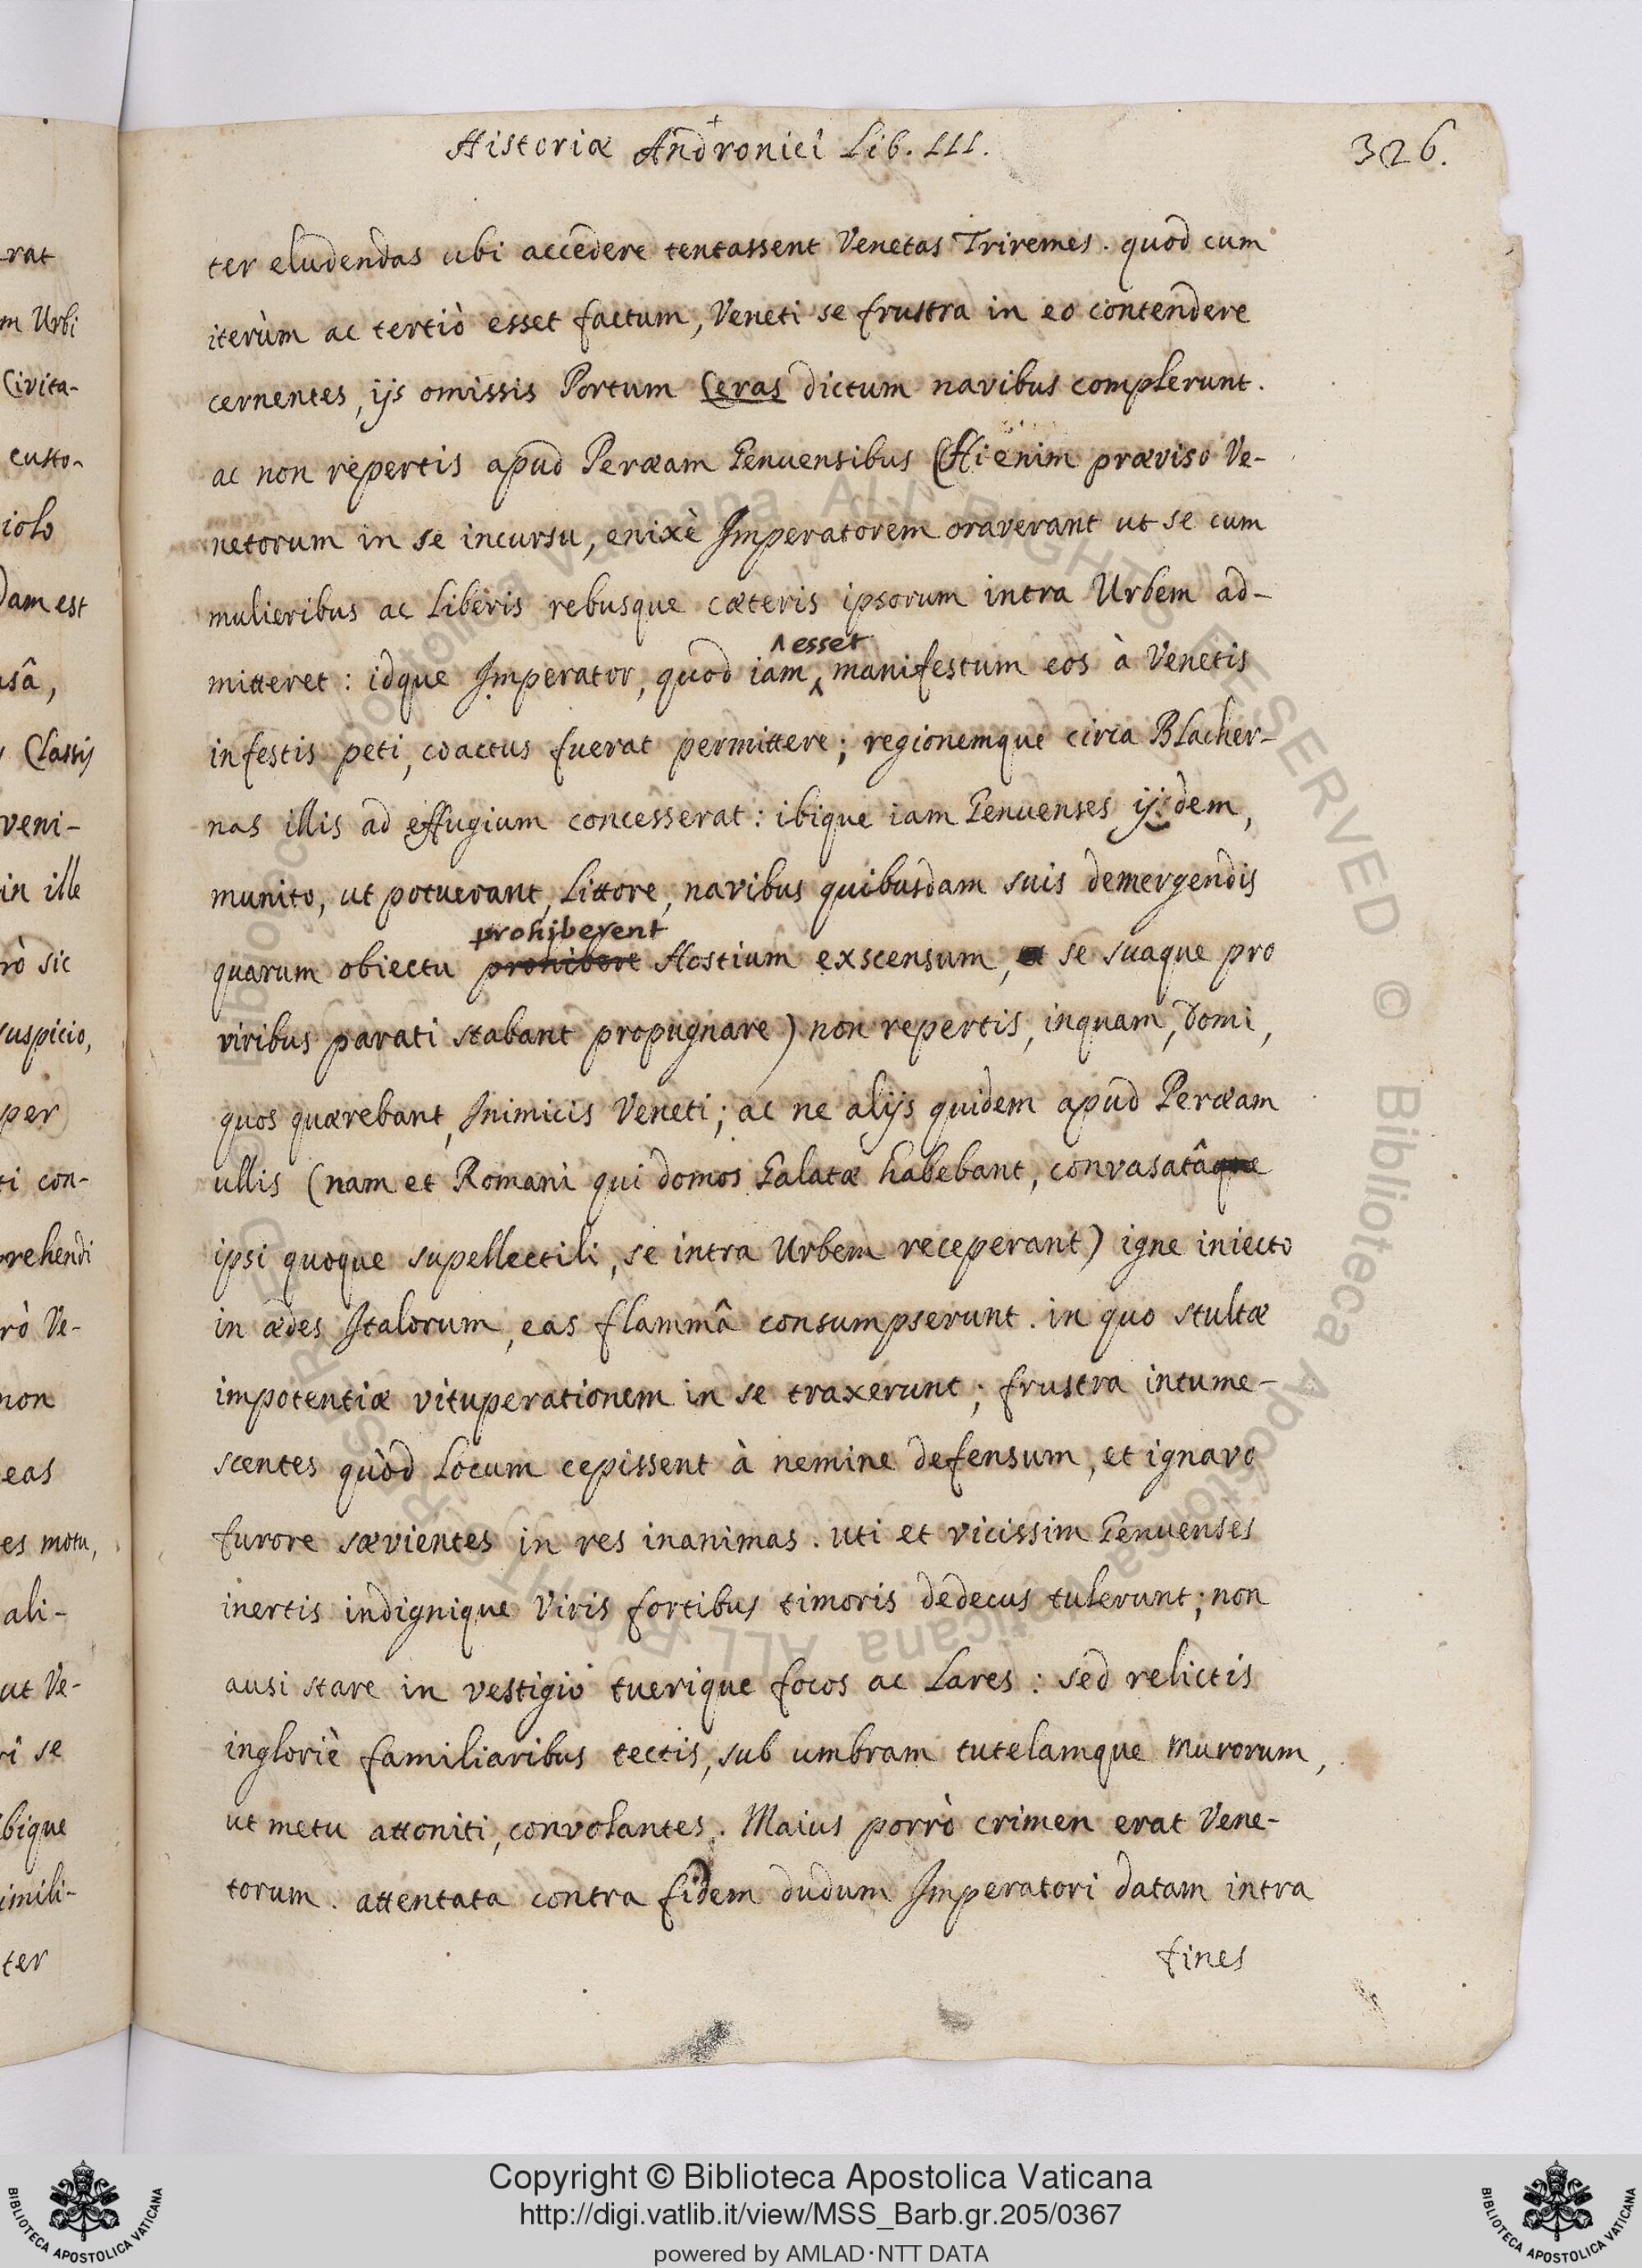 Historiæ Andronici Lib. III.
326.
ter eludendas ubi accedere tentassent Venetas Triremes. quod cum
iterùm ac tertiò esset factum, Veneti se frustra in eo contendere
cernentes, ijs omissis Portum Ceras dictum navibus complerunt.
ac non repertis apud Peræam Genuensibus (Hi enim præviso Ve-
netorum in se incursu, enixè Imperatorem oraverant ut se cum
mulieribus ac Liberis rebusque cæteris ipsorum intra Urbem ad-
esset
mitteret: idque Imperator, quod iam manifestum eos à Venetis
infestis peti, coactus fuerat permittere; regionemque circa Blacher-
nas illis ad effugium concesserat: ibique iam Genuenses ijsdem,
munito, ut potuerant, Littore, navibus quibusdam suis demergendis
prohiberent
quarum obiectu prohibere Hostium exscensum, et se suaque pro
viribus parati stabant propugnare) non repertis, inquam, domi,
quos quærebant, Inimicis Veneti; ac ne alijs quidem apud Peræam
ullis (nam et Romani qui domos Galatæ habebant, convasatâque
ipsi quoque supellectili, se intra Urbem receperant) igne iniecto
in ædes Italorum, eas flammâ consumpserunt. in quo stultæ
impotentiæ vituperationem in se traxerunt; frustra intume-
scentes quòd Locum cepissent à nemine defensum, et ignavo
furore sævientes in res inanimas. uti et vicissim Genuenses
inertis indignique Viris fortibus timoris dedecus tulerunt; non
ausi stare in vestigio tuerique focos ac Lares: sed relictis
ingloriè familiaribus tectis, sub umbram tutelamque murorum,
ut metu attoniti, convolantes. Maius porrò crimen erat Vene-
torum. attentata contra fidem dudum Imperatori datam intra
fines
rat
m Urbi
Civita-
custo-
iolo
dam est
usâ,
Classis
veni-
in ille
rò sic
suspicio,
per
ti con-
prehendi
rò Ve-
non
eas
es motu,
ali-
ut Ve-
ri se
bique
imili-
ter
Copyright © Biblioteca Apostolica Vaticana
http://digi.vatlib.it/view/MSS_Barb.gr.205/0367
powered by AMLAD·NTT DATA
BIBLIOTECA APOSTOLICA VATICANA
BIBLIOTECA APOSTOLICA VATICANA